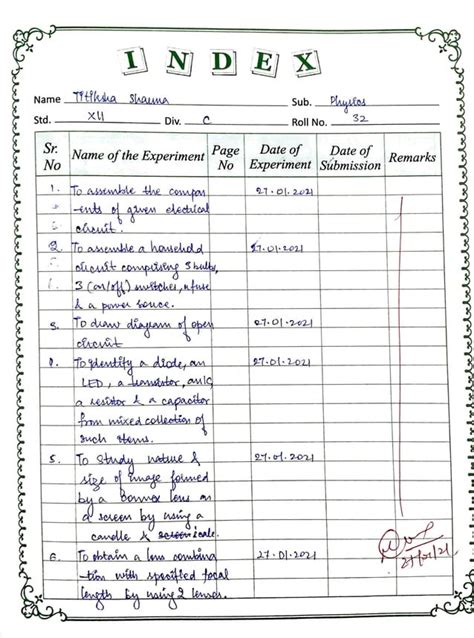 INDEX
Name Titiksha Sharma Sub. Physics
Std. XII Div. C Roll No. 32
Sr. No Name of the Experiment Page No Date of Experiment Date of Submission Remarks
1. To assemble the compon 27.01.2021
-ents of given electrical
circuit.
2. To assemble a household 27.01.2021
circuit comprising 3 bulbs,
3 (on/off) switches, a fuse
& a power source.
3. To draw diagram of open 27.01.2021
circuit
4. To identify a diode, an 27.01.2021
LED, a transistor, an IC,
a resistor & a capacitor
from mixed collection of
such items.
5. To study nature & 27.01.2021
size of image formed
by a convex lens on
a screen by using a
candle & screen
6. To obtain a lens combina 27.01.2021
-tion with specified focal
length by using 2 lenses.
27/01/21